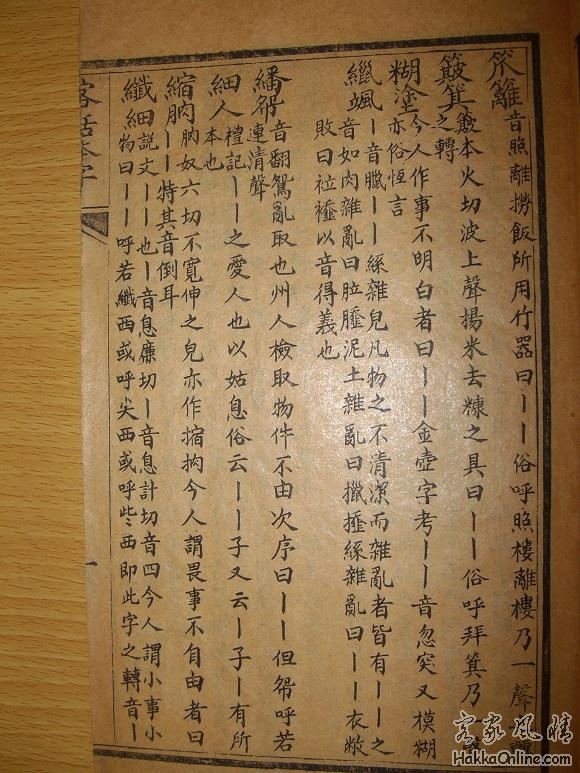 笊籬音照離撈飯所用竹器曰丨丨俗呼照樓離樓乃一聲
之轉
簸箕簸本火切波上聲揚米去糠之具曰丨丨俗呼拜箕乃
糊塗今人作事不明白者曰丨丨金壺字考丨丨音忽突又模糊
亦俗恆言
颯丨音臘丨丨絲雜皃凡物之不清潔而雜亂者皆有丨丨之
音如肉雜亂曰泥土雜亂曰絲雜亂曰丨丨衣敝
敗曰以音得義也
繙音翻鴛亂取也州人檢取物件不由次序曰丨丨但呼若
連清聲
細人禮記丨丨之愛人也以姑息俗云丨丨子又云丨子丨有所
本也
縮朒朒奴六切不寬伸之皃亦作今人謂畏事不自由者曰
丨丨特其音倒耳
纖細説文丨丨也丨音息廉切丨音息計切音四今人謂小事小
物曰丨丨呼若纖西或呼尖西或呼些西即此字之轉音丨
客話本字
一
客家風情
HakkaOnline.com